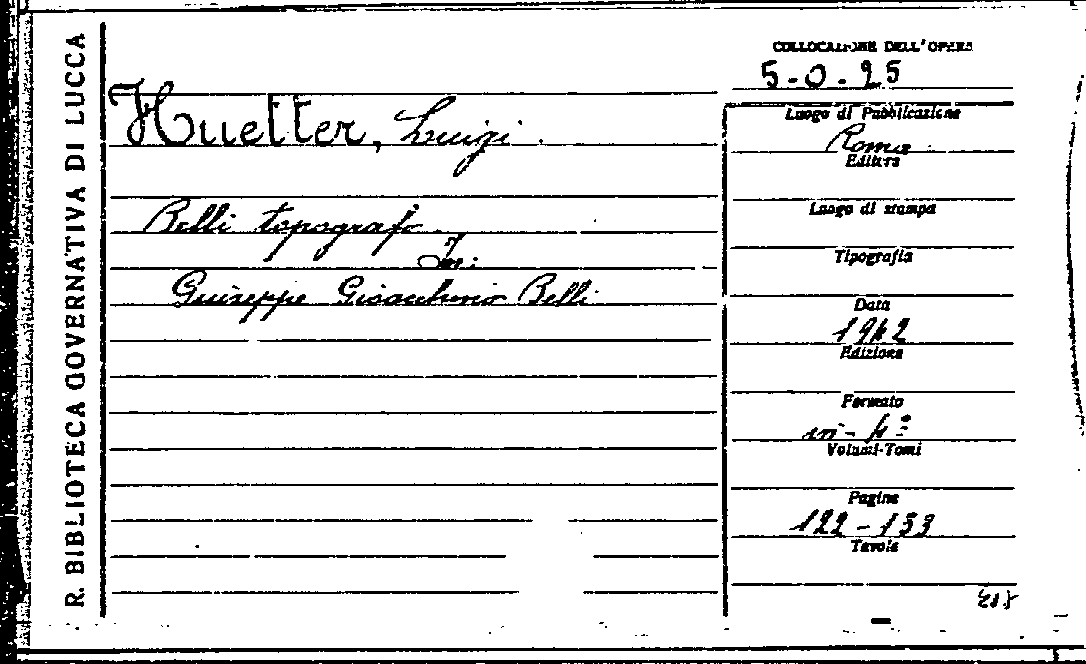 R. BIBLIOTECA GOVERNATIVA DI LUCCA
Huetter, Luigi.
Belli topografo.
In:
Giuseppe Gioacchino Belli
COLLOCAZIONE DELL'OPERA
5-0-25
Luogo di Pubblicazione
Roma
Editore
Luogo di stampa
Tipografia
Data
1942
Edizione
Formato
in-4°
Volumi-Tomi
Pagine
122-153
Tavole